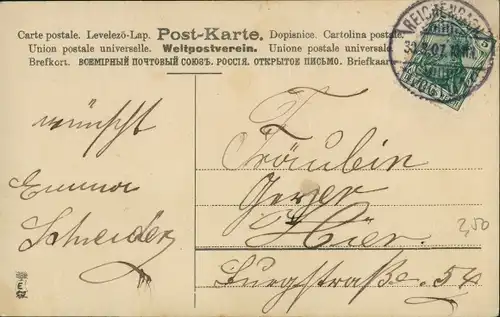 Carte postale. Levelező-Lap. Post-Karte. Dopisnice. Cartolina postale.
Union postale universelle. Weltpostverein. Unione postale universale
Brefkort. ВСЕМІРНЫЙ ПОЧТОВЫЙ СОЮЗЪ. РОССІЯ. ОТКРЫТОЕ ПИСЬМО. Briefkaart
REICHENBACH
wünscht
Emma
Schneider
Fräulein
Geyer
Hier.
Burgstraße. 54
2,50